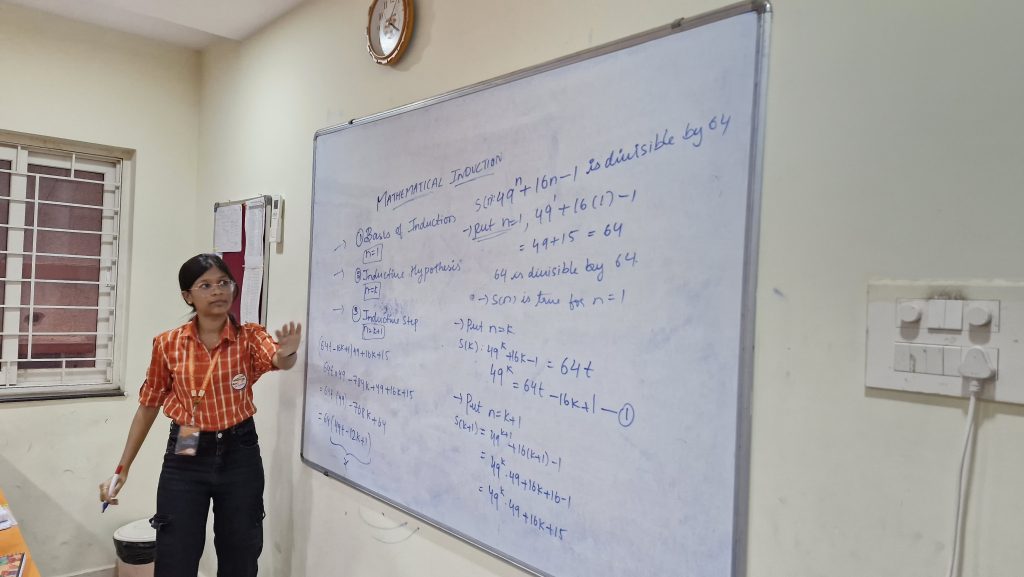 MATHEMATICAL INDUCTION
-> ① Basis of Induction
n=1
-> ② Inductive Hypothesis
n=k
-> ③ Inductive Step
n=k+1
(64t-16k+1)49+16k+15
64t×49-784k+49+16k+15
=64t(49)-768k+64
=64(49t-12k+1)
S(n): 49^n+16n-1 is divisible by 64
-> Put n=1, 49^1+16(1)-1
= 49+15 = 64
64 is divisible by 64
-> S(n) is true for n=1
-> Put n=k
S(k): 49^k+16k-1 = 64t
49^k = 64t-16k+1 — ①
-> Put n=k+1
S(k+1) = 49^k+1+16(k+1)-1
= 49^k.49+16k+16-1
= 49^k.49+16k+15